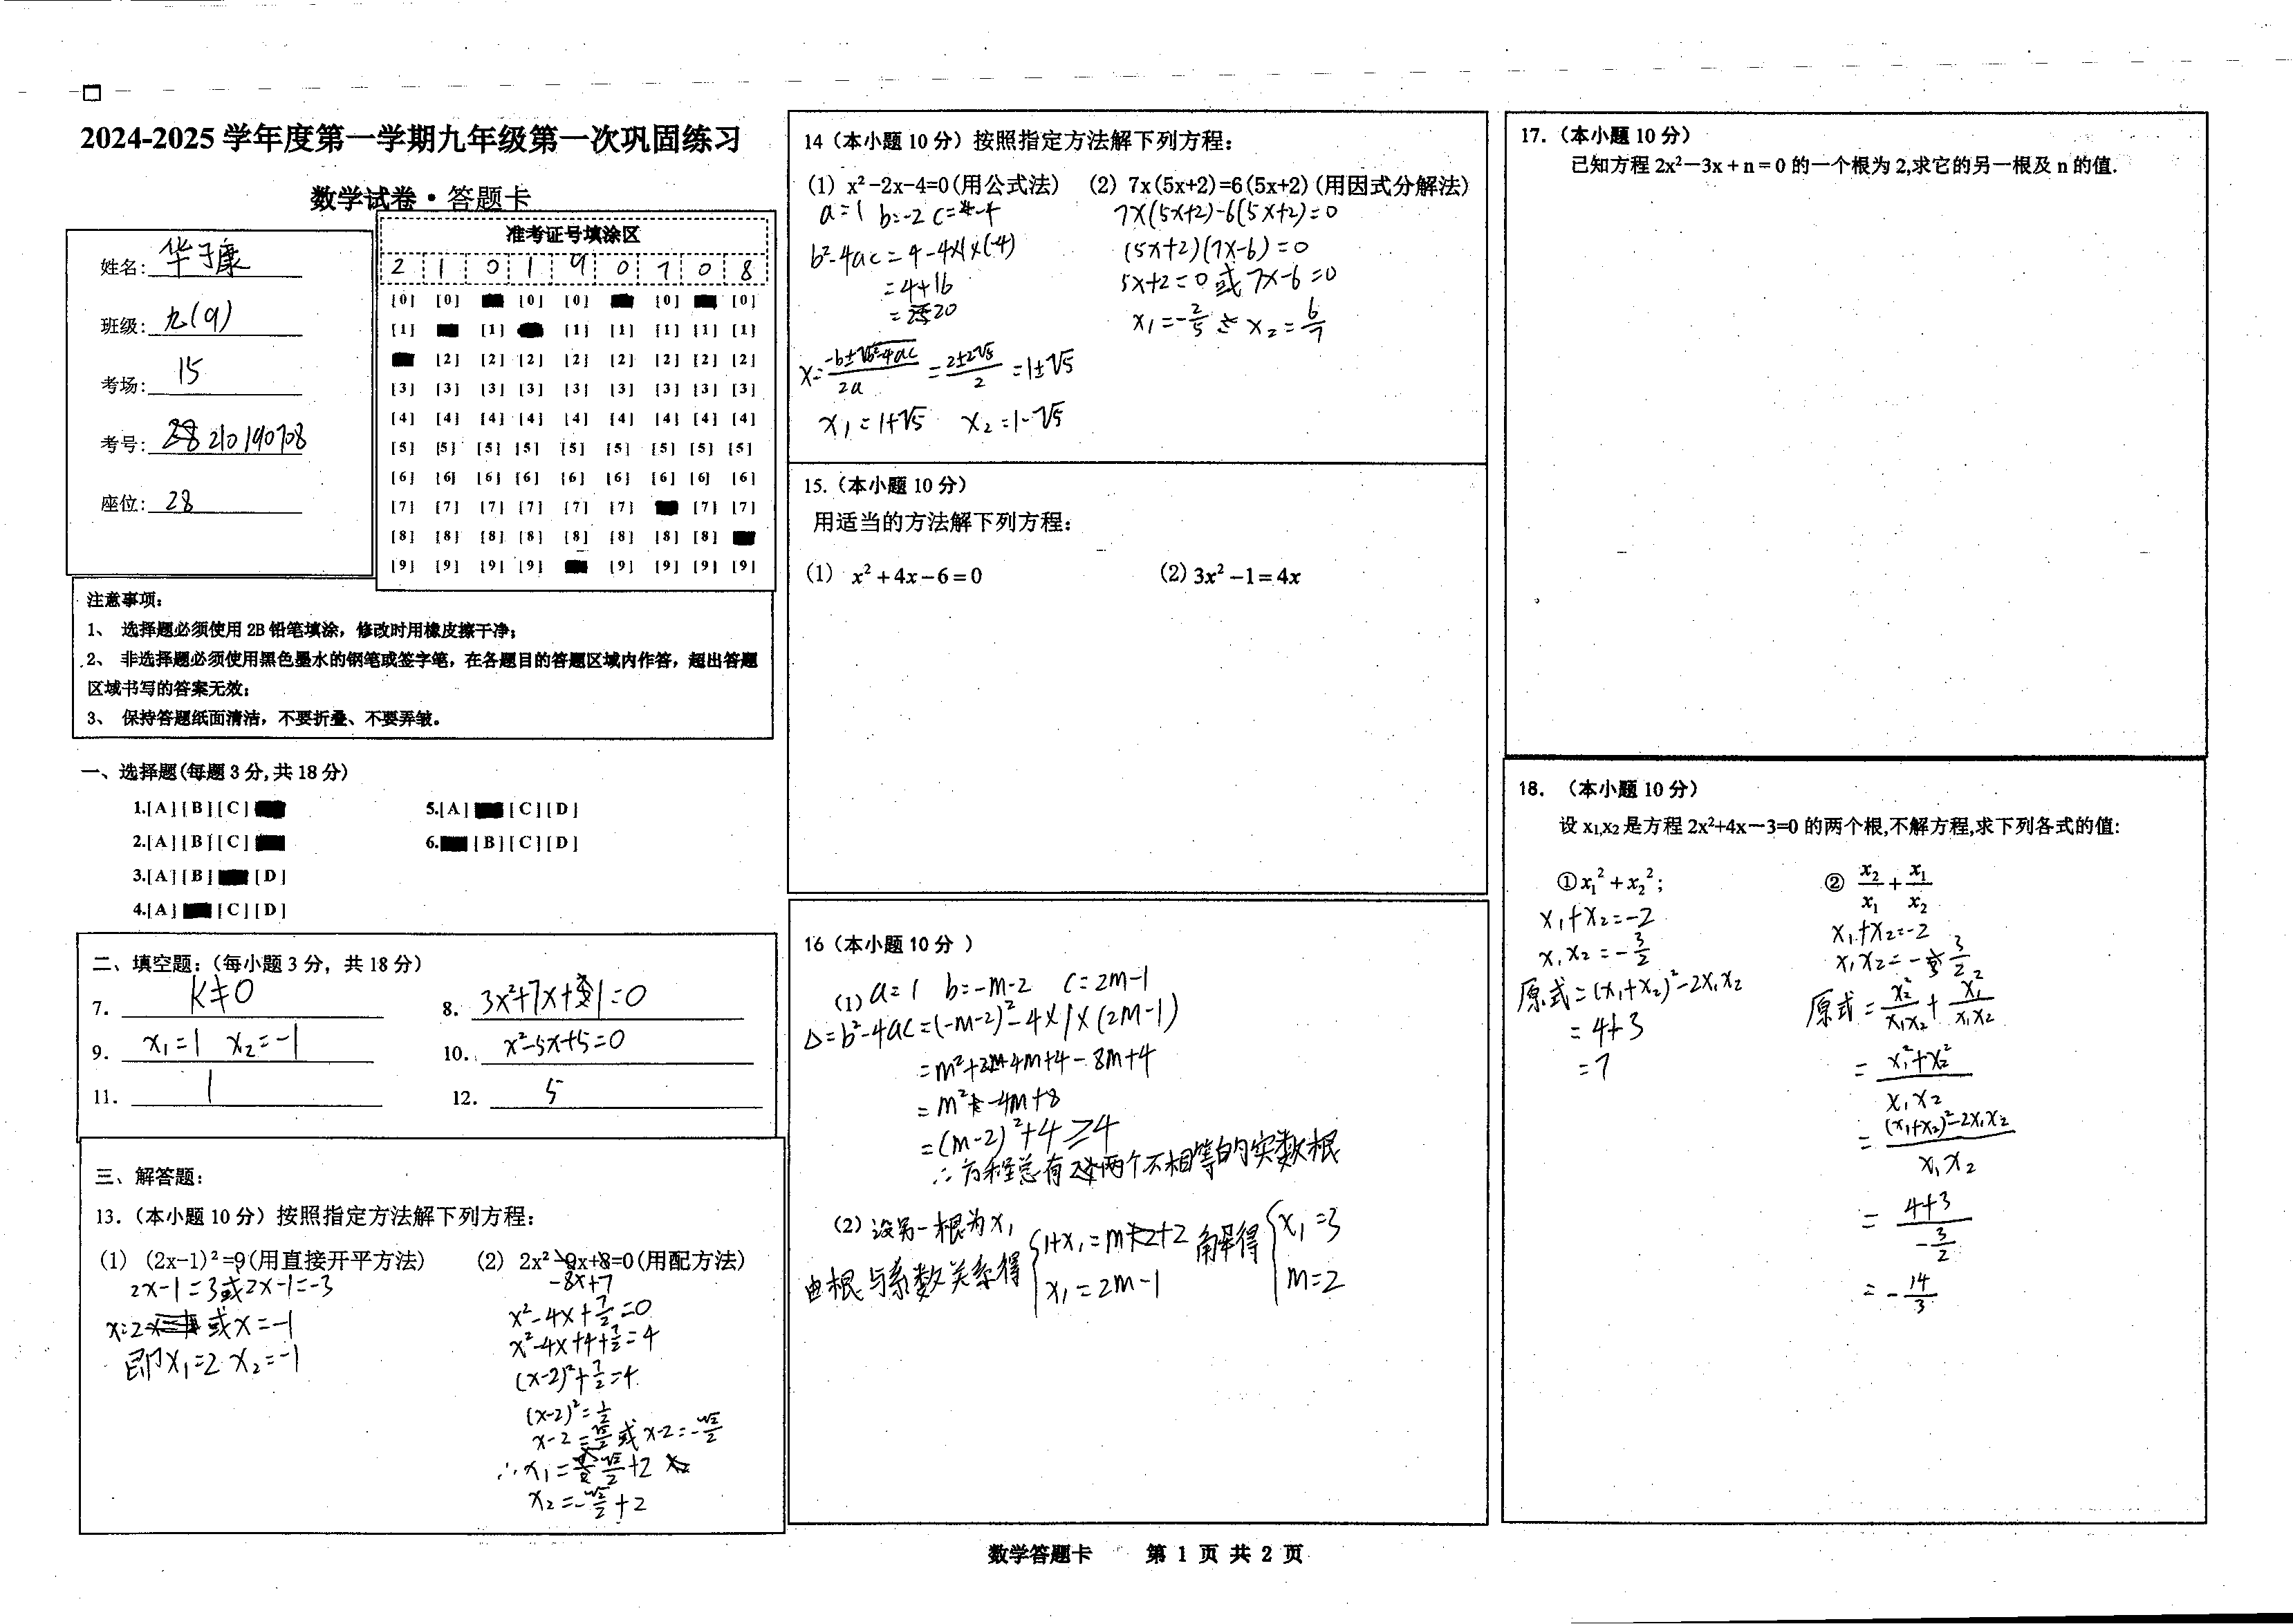 2024-2025 学年度第一学期九年级第一次巩固练习
数学试卷·答题卡
姓名: 华子康
班级: 九(9)
考场: 15
考号: 210190708
座位: 28
准考证号填涂区
2 1 0 1 9 0 7 0 8
[0] [0] [0] [0] [0] [0]
[1] [1] [1] [1] [1] [1] [1]
[2] [2] [2] [2] [2] [2] [2] [2]
[3] [3] [3] [3] [3] [3] [3] [3] [3]
[4] [4] [4] [4] [4] [4] [4] [4] [4]
[5] [5] [5] [5] [5] [5] [5] [5] [5]
[6] [6] [6] [6] [6] [6] [6] [6] [6]
[7] [7] [7] [7] [7] [7] [7] [7]
[8] [8] [8] [8] [8] [8] [8] [8]
[9] [9] [9] [9] [9] [9] [9] [9]
注意事项:
1、 选择题必须使用 2B 铅笔填涂，修改时用橡皮擦干净;
2、 非选择题必须使用黑色墨水的钢笔或签字笔，在各题目的答题区域内作答，超出答题
区域书写的答案无效;
3、 保持答题纸面清洁，不要折叠、不要弄皱。
一、选择题(每题 3 分,共 18 分)
1.[A][B][C]
5.[A] [C][D]
2.[A][B][C]
6. [B][C][D]
3.[A][B] [D]
4.[A] [C][D]
二、填空题:（每小题 3 分，共 18 分）
7. k≠0
8. 3x²+7x+1=0
9. x₁=1 x₂=-1
10. x²-5x+5=0
11. 1
12. 5
三、解答题:
13.（本小题 10 分）按照指定方法解下列方程:
(1) (2x-1)²=9(用直接开平方法)
2x-1=3或2x-1=-3
x=2 或x=-1
即x₁=2 x₂=-1
(2) 2x²-9x+8=0(用配方法)
-8x+7
x²-4x+7/2=0
x²-4x+4+7/2=4
(x-2)²+7/2=4
(x-2)²=1/2
x-2=√2/2 或 x-2=-√2/2
∴x₁=√2/2+2
x₂=-√2/2+2
14（本小题 10 分）按照指定方法解下列方程:
(1) x²-2x-4=0(用公式法)
a=1 b=-2 c=-4
b²-4ac=4-4×1×(-4)
=4+16
=20
x=(-b±√(b²-4ac))/2a=(2±2√5)/2=1±√5
x₁=1+√5 x₂=1-√5
(2) 7x(5x+2)=6(5x+2)(用因式分解法)
7x(5x+2)-6(5x+2)=0
(5x+2)(7x-6)=0
5x+2=0或7x-6=0
x₁=-2/5 x₂=6/7
15.（本小题 10 分）
用适当的方法解下列方程:
(1) x²+4x-6=0
(2) 3x²-1=4x
16（本小题 10 分 ）
(1) a=1 b=-m-2 c=2m-1
Δ=b²-4ac=(-m-2)²-4×1×(2m-1)
=m²+4m+4-8m+4
=m²-4m+8
=(m-2)²+4≥4
∴方程总有两个不相等的实数根
(2) 设另一根为x₁
由根与系数关系得{1+x₁=m+2 x₁=2m-1 解得{x₁=3 m=2
17.（本小题 10 分）
已知方程 2x²-3x+n=0 的一个根为 2,求它的另一根及 n 的值.
18. （本小题 10 分）
设 x₁,x₂ 是方程 2x²+4x-3=0 的两个根,不解方程,求下列各式的值:
①x₁²+x₂²;
x₁+x₂=-2
x₁x₂=-3/2
原式=(x₁+x₂)²-2x₁x₂
=4+3
=7
② x₂/x₁+x₁/x₂
x₁+x₂=-2
x₁x₂=-3/2
原式=x₂²/x₁x₂+x₁²/x₁x₂
=(x₁²+x₂²)/x₁x₂
=((x₁+x₂)²-2x₁x₂)/x₁x₂
=(4+3)/(-3/2)
=-14/3
数学答题卡 第 1 页 共 2 页